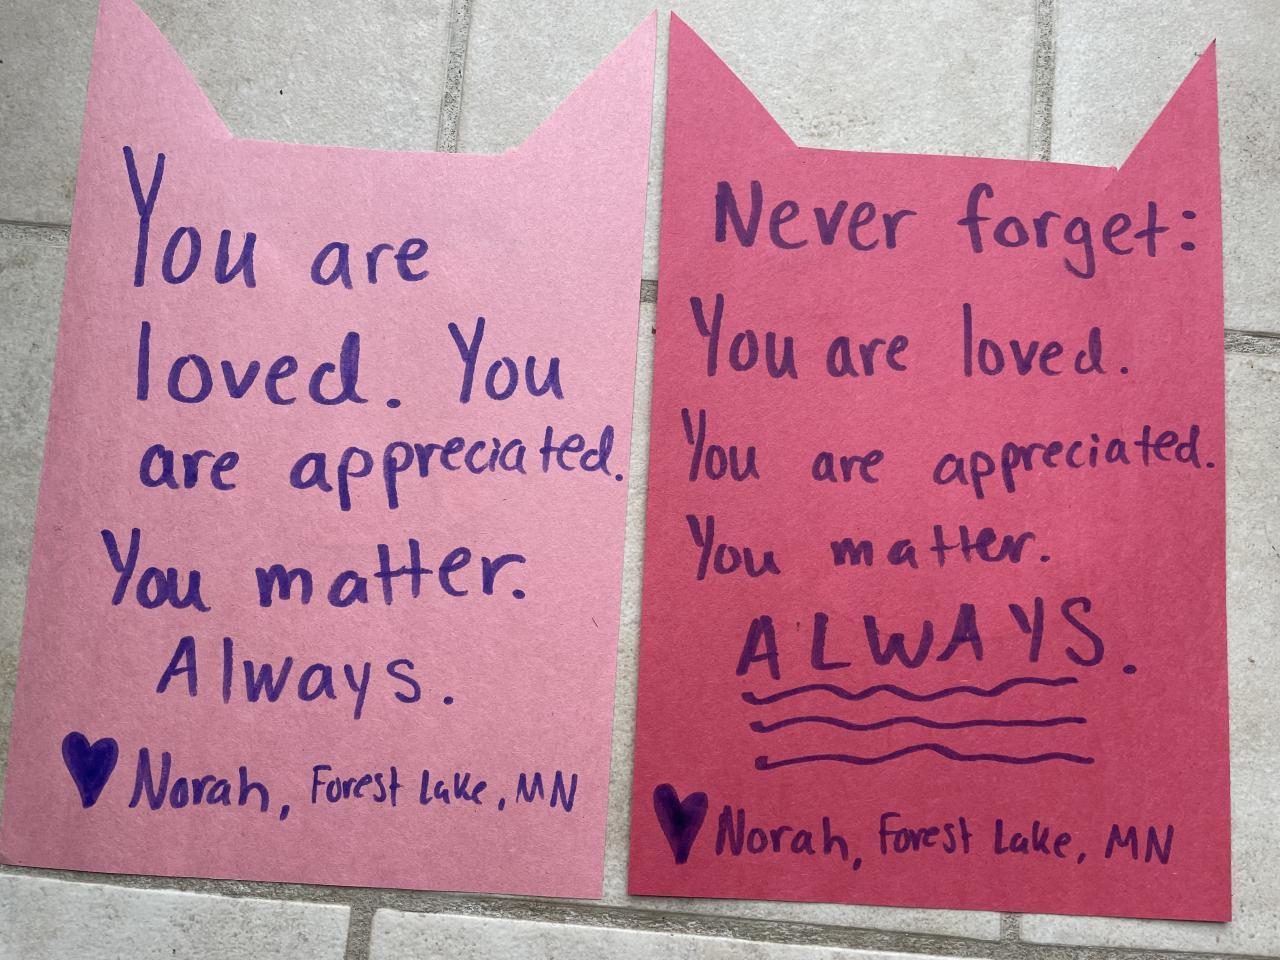 You are
loved. You
are appreciated.
You matter.
Always.
Norah, Forest Lake, MN
Never forget:
You are loved.
You are appreciated.
You matter.
ALWAYS.
Norah, Forest Lake, MN